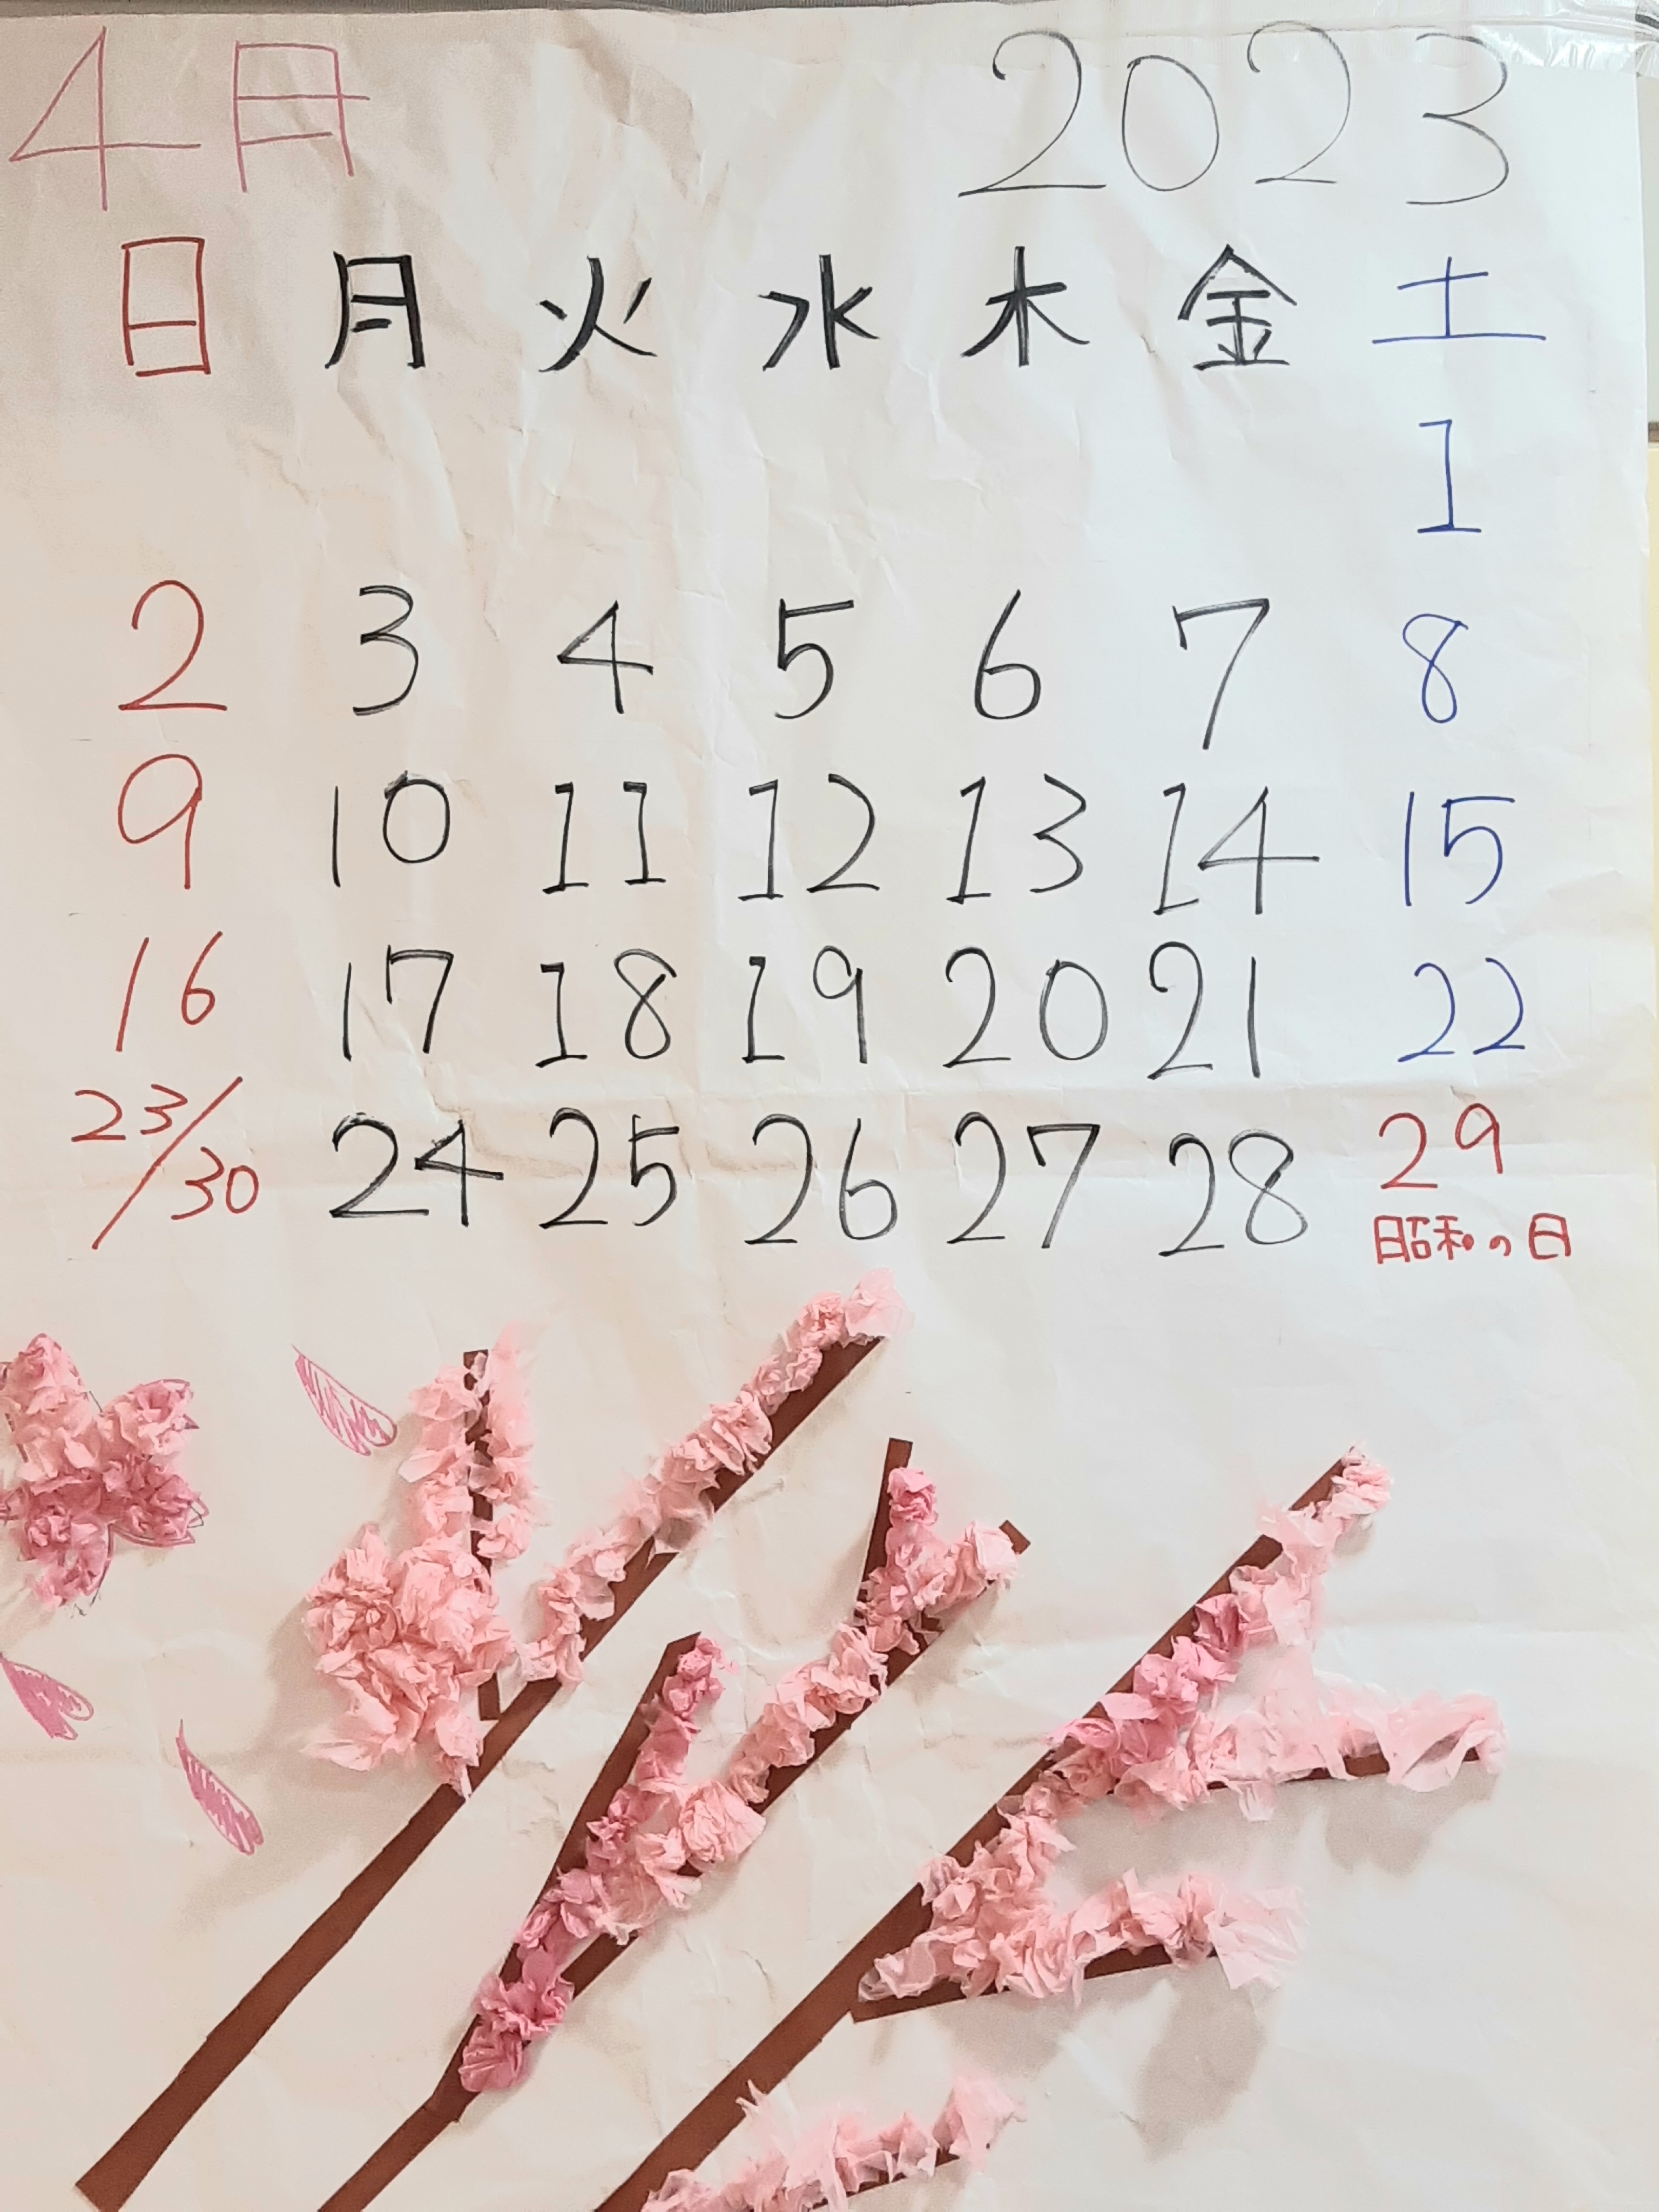 4月 2023
日 月 火 水 木 金 土
1
2 3 4 5 6 7 8
9 10 11 12 13 14 15
16 17 18 19 20 21 22
23/30 24 25 26 27 28 29
昭和の日